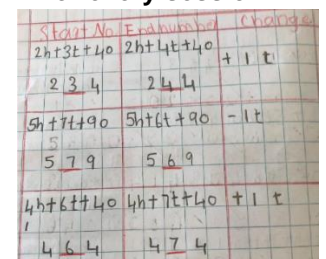 Start No. End number Change
2h+3t+40 2h+4t+40 + 1 t
2 3 4 2 4 4
5h+7t+90 5h+6t+90 - 1t
5 7 9 5 6 9
4h+6t+40 4h+7t+40 + 1 t
4 6 4 4 7 4